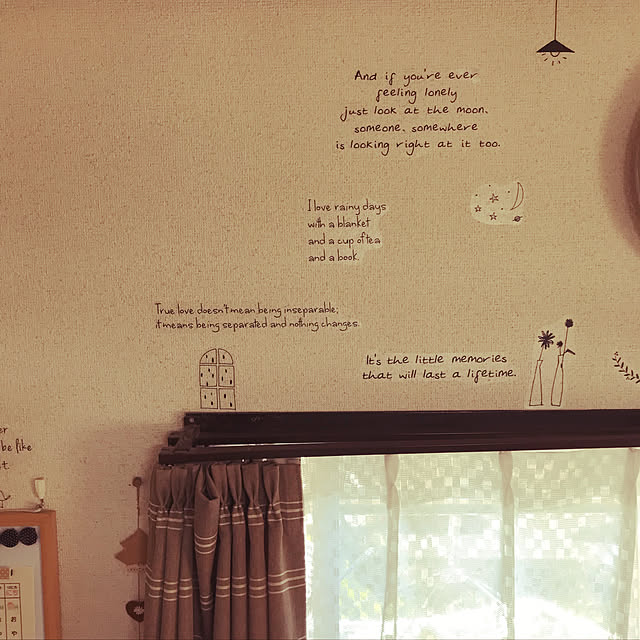 And if you're ever
feeling lonely
just look at the moon.
someone, somewhere
is looking right at it too.
I love rainy days
with a blanket
and a cup of tea
and a book.
True love doesn't mean being inseparable;
it means being separated and nothing changes.
It's the little memories
that will last a lifetime.
be like